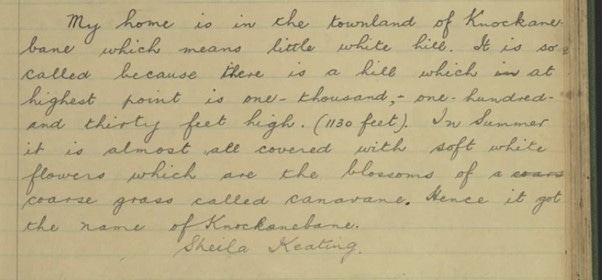 My home is in the townland of Knockane-
bane which means little white hill. It is so
called because there is a hill which in at
highest point is one-thousand,- one-hundred-
and thirty feet high. (1130 feet). In Summer
it is almost all covered with soft white
flowers which are the blossoms of a coars
coarse grass called canavane. Hence it got
the name of Knockanebane.
Sheila Keating.